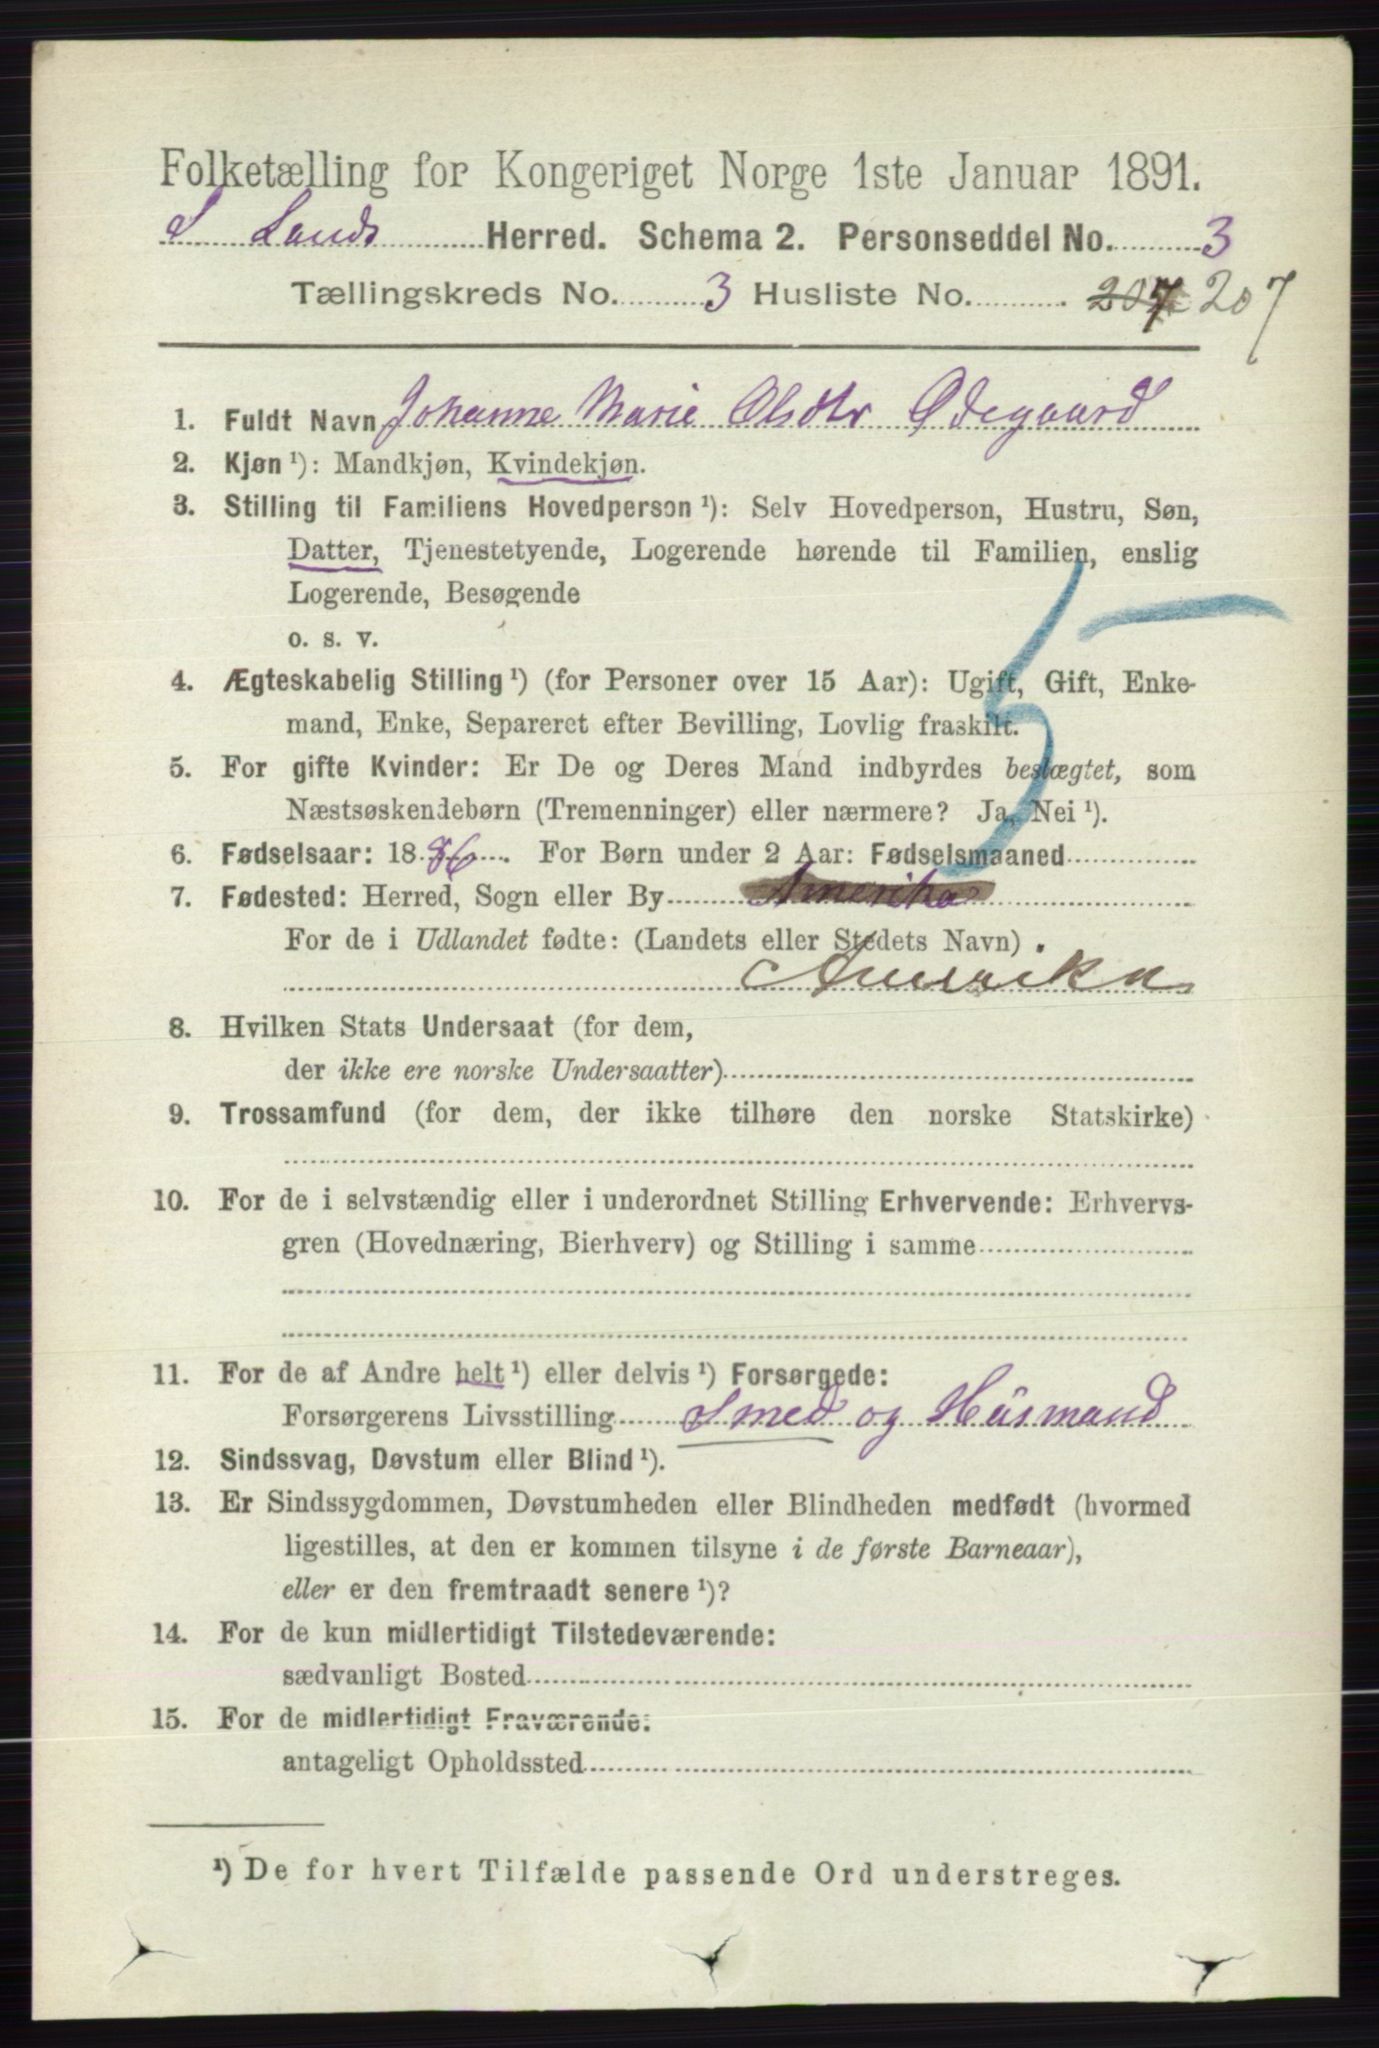 Folketælling for Kongeriget Norge 1ste Januar 1891.
S Lands Herred. Schema 2. Personseddel No. 3
Tællingskreds No. 3 Husliste No. 207 207
1. Fuldt Navn Johanne Marie Olsdtr Ødegaard
2. Kjøn ¹): Mandkjøn, Kvindekjøn.
3. Stilling til Familiens Hovedperson ¹): Selv Hovedperson, Hustru, Søn,
Datter, Tjenestetyende, Logerende hørende til Familien, enslig
Logerende, Besøgende
o. s. v.
5
4. Ægteskabelig Stilling ¹) (for Personer over 15 Aar): Ugift, Gift, Enke-
mand, Enke, Separeret efter Bevilling, Lovlig fraskilt.
5. For gifte Kvinder: Er De og Deres Mand indbyrdes beslægtet, som
Næstsøskendebørn (Tremenninger) eller nærmere? Ja, Nei ¹).
6. Fødselsaar: 1886. For Børn under 2 Aar: Fødselsmaaned
7. Fødested: Herred, Sogn eller By Amerika
For de i Udlandet fødte: (Landets eller Stedets Navn).
Amerika
8. Hvilken Stats Undersaat (for dem,
der ikke ere norske Undersaatter)
9. Trossamfund (for dem, der ikke tilhøre den norske Statskirke)
10. For de i selvstændig eller i underordnet Stilling Erhvervende: Erhvervs-
gren (Hovednæring, Bierhverv) og Stilling i samme
11. For de af Andre helt ¹) eller delvis ¹) Forsørgede:
Forsørgerens Livsstilling Smed og Husmand
12. Sindssvag, Døvstum eller Blind ¹).
13. Er Sindssygdommen, Døvstumheden eller Blindheden medfødt (hvormed
ligestilles, at den er kommen tilsyne i de første Barneaar),
eller er den fremtraadt senere ¹)?
14. For de kun midlertidigt Tilstedeværende:
sædvanligt Bosted
15. For de midlertidigt Fraværende:
antageligt Opholdssted
¹) De for hvert Tilfælde passende Ord understreges.